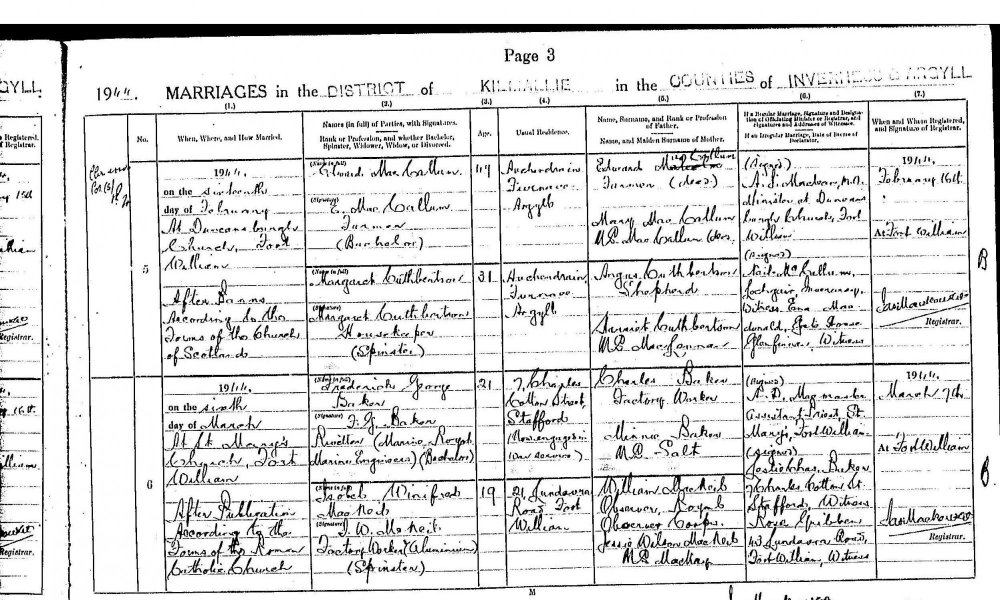 Page 3
1944. MARRIAGES in the DISTRICT of KILMALLIE in the COUNTIES of INVERNESS & ARGYLL
(1.) (2.) (3.) (4.) (5.) (6.) (7.)
No.
When, Where, and How Married.
Names (in full) of Parties, with Signatures.
Rank or Profession, and whether Bachelor,
Spinster, Widower, Widow, or Divorced.
Age.
Usual Residence.
Name, Surname, and Rank or Profession
of Father.
Name, and Maiden Surname of Mother.
If a Regular Marriage, Signature and Designa-
tion of Officiating Minister or Registrar, and
Signatures and Addresses of Witnesses.
If an Irregular Marriage, Date of Decree of
Declarator.
When and Where Registered,
and Signature of Registrar.
5
1944,
on the sixteenth
day of February
At Duncansburgh
Church, Fort
William
After Banns
According to the
Forms of the Church
of Scotland
(Name in full)
Edward MacCallum
(Signature)
E. MacCallum
Farmer
(Bachelor)
Auchindrain
Furnace
Argyll
Edward
Farmer (decd)
Mary MacCallum
M.S. MacCallum
(Signed)
Minister of Duncans
burgh Church, Fort
William
(Signed)
(Name in full)
Margaret Cuthbertson
(Signature)
Margaret Cuthbertson
Housekeeper
(Spinster)
31
Auchindrain
Furnace
Argyll
Angus Cuthbertson
Shepherd
Harriet Cuthbertson
M.S. MacLennan
Neil McCallum,
Witness
Glenfinnan, Witness
1944,
February 16th
At Fort William
Registrar.
6
1944,
on the sixth
day of March
At St. Mary's
Church, Fort
William
After Publication
According to the
Forms of the Roman
Catholic Church
(Name in full)
Frederick George
Baker
(Signature)
F. G. Baker
(Marine, Royal
Marine Engineers) (Bachelor)
21
7, Charles
Cotton Street,
Stafford
(Now engaged in
War Service)
Charles Baker
Factory Worker
Minnie Baker
M.S. Salt
(Signed)
Assistant Priest, St.
Mary's, Fort William
(Signed)
Baker
7 Charles Cotton St
Stafford, Witness
43 Lundavra Road,
Fort William, Witness
Isobel Winifred
MacNeil
(Signature)
I. W. McNeil
Factory Worker (Aluminium)
(Spinster)
19
Lundavra
Road Fort
William
William MacNeil
Observer, Royal
Observer Corps
Jessie Wilson MacNeil
M.S. MacKay
1944,
March 7th
At Fort William
Registrar.
B
B.
M